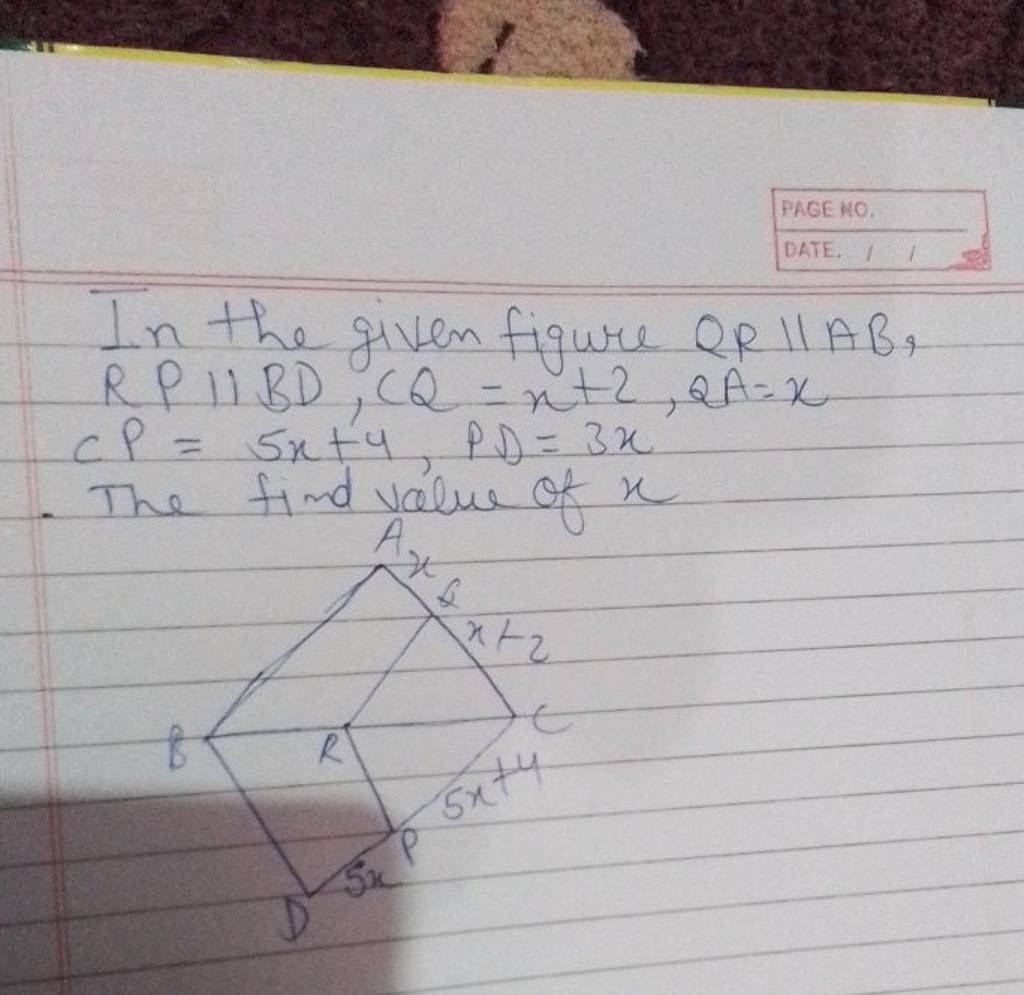 PAGE NO.
DATE. / /
In the given figure QR || AB,
RP || BD, CQ = x+2, QA = x
CP = 5x+4, PD = 3x
. The find value of x
A
x
Q
x+2
B
R
C
5x+4
P
5x
D